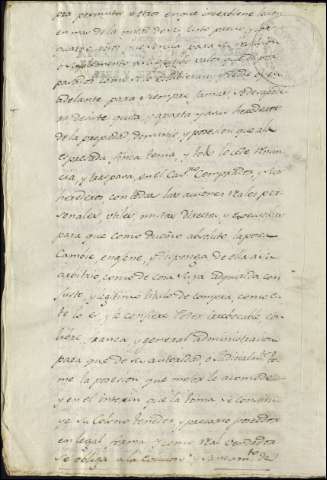 pra permuta u otros en que interviene lesion
en mas de la mitad del justo precio y los
quatro años que concede para la rescision
o suplemento a su justo valor
pasados como si lo estubieran y desde oy en
adelante para siempre jamas, se desapodera
desiste quita, y aparta y a sus herederos
de la propiedad, dominio, y posesion que a la
expresada finca tenia, y todo lo cede renun
cia, y traspasa, en el Comprador, y sus
herederos con todas las acciones reales per
sonales, utiles, mixtas, directas, y executivas
para que como dueño absoluto la posea
Cambie, enagene, y disponga de ella a su
arbitrio, como de cosa suya adquirida con
justo, y legitimo titulo de compra, como es
te lo es, y le confiere Poder irrebocable con
libre, franca, y general administracion
para que de su autoridad, o Judicialmte to
me la posesion, que mejor le acomode
y en el interin que la toma se constitu
ye su Colono tenedor y precario poseedor
en legal forma, y como real vendedor
se obliga a la eviccion y saneamto de